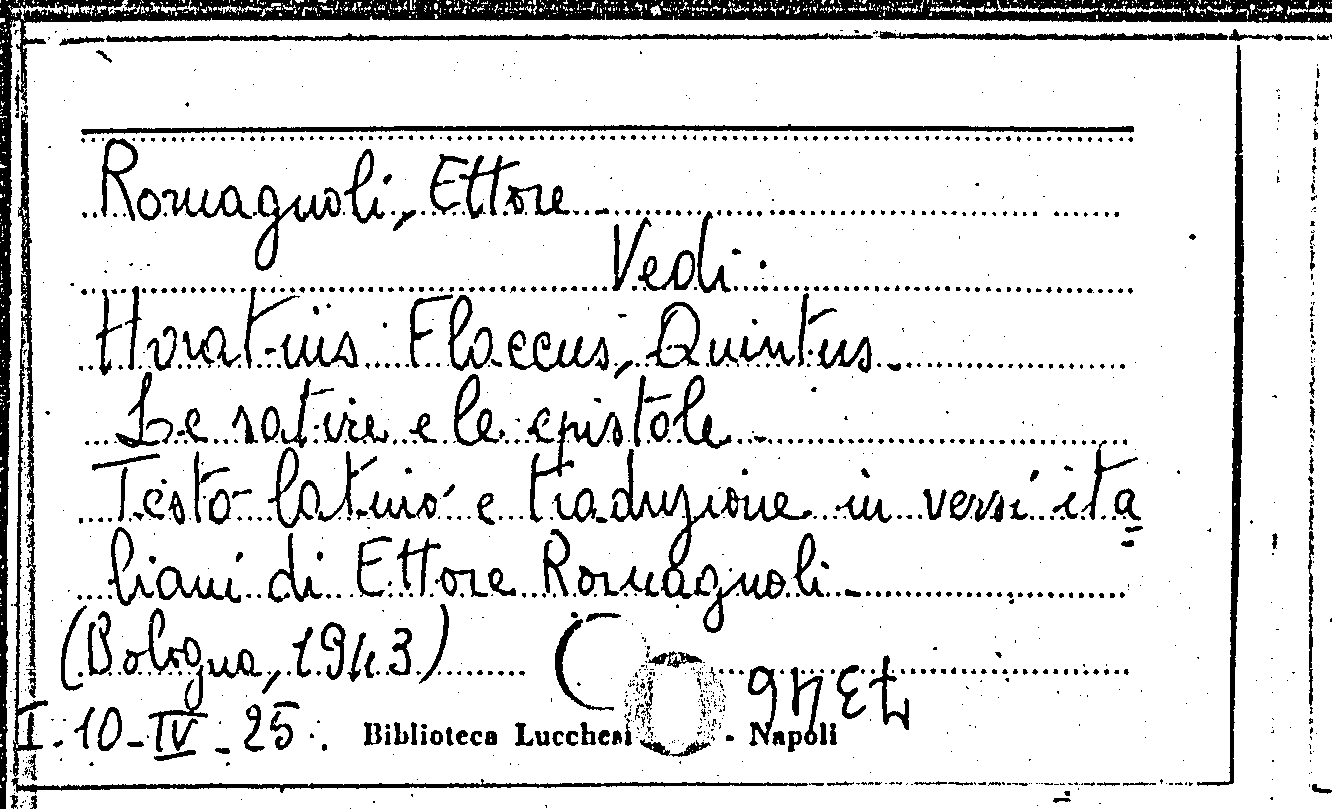 Romagnoli, Ettore.
Vedi:
Horatius Flaccus, Quintus.
Le satire e le epistole.
Testo latino e traduzione in versi ita
liani di Ettore Romagnoli.
(Bologna, 1943)
I-10-IV-25. Biblioteca Lucchesi - Napoli